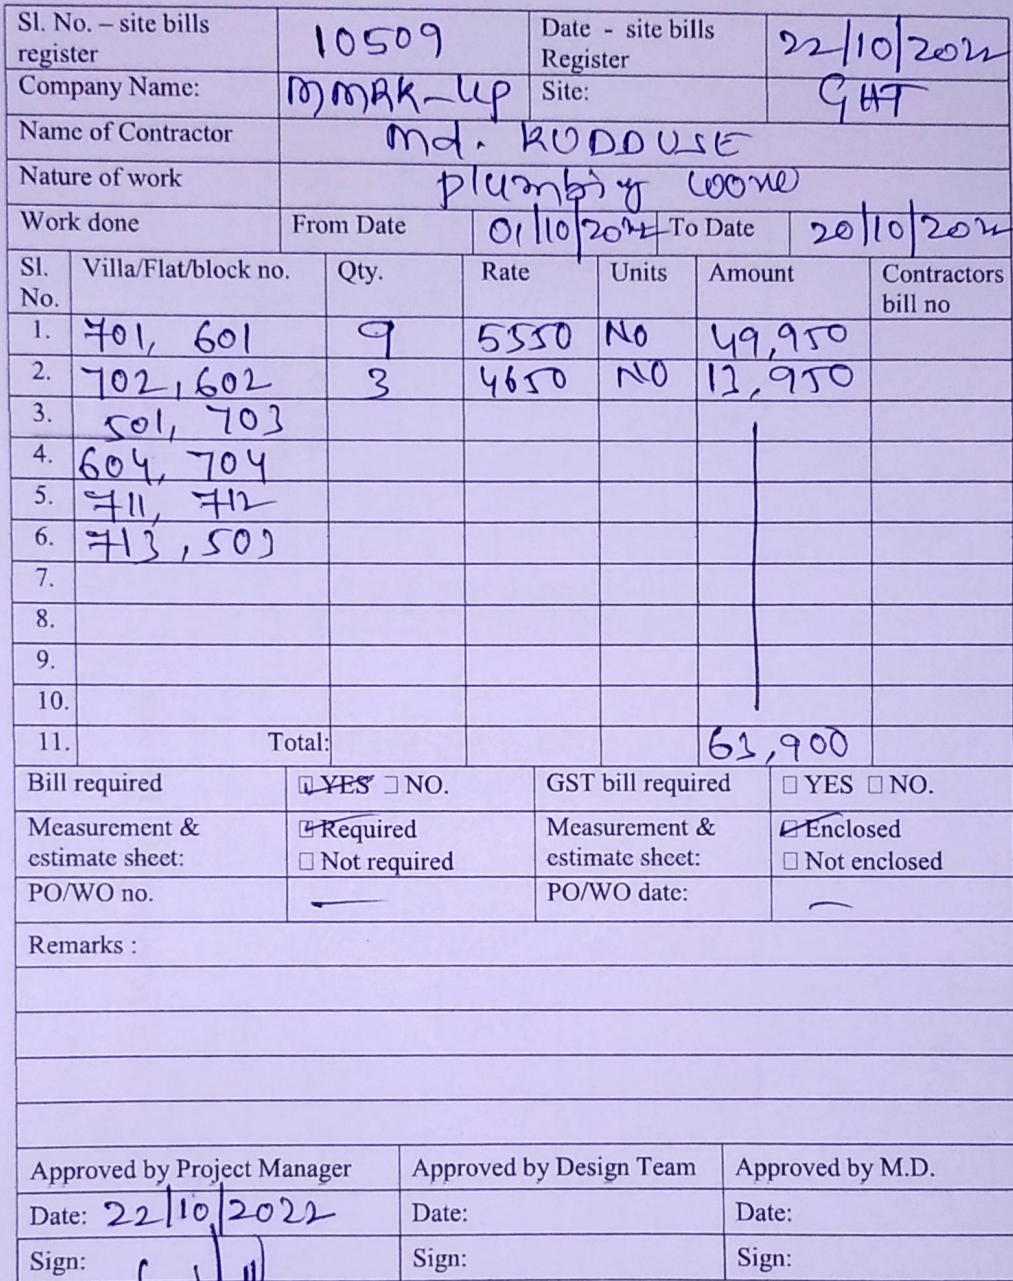 Sl. No. – site bills register 10509 Date - site bills Register 22/10/2022
Company Name: MMRK-UP Site: GHT
Name of Contractor Md. KUDDUSE
Nature of work plumbing work
Work done From Date 01/10/2022 To Date 20/10/2022
Sl. No. Villa/Flat/block no. Qty. Rate Units Amount Contractors bill no
1. 701, 601 9 5550 NO 49,950
2. 702, 602 3 4650 NO 13,950
3. 501, 703
4. 604, 704
5. 711, 712
6. 713, 503
7.
8.
9.
10.
11. Total: 63,900
Bill required ☑ YES ☐ NO. GST bill required ☐ YES ☐ NO.
Measurement & estimate sheet: ☑ Required ☐ Not required Measurement & estimate sheet: ☑ Enclosed ☐ Not enclosed
PO/WO no. — PO/WO date: —
Remarks :
Approved by Project Manager Approved by Design Team Approved by M.D.
Date: 22/10/2022 Date: Date:
Sign: Sign: Sign: